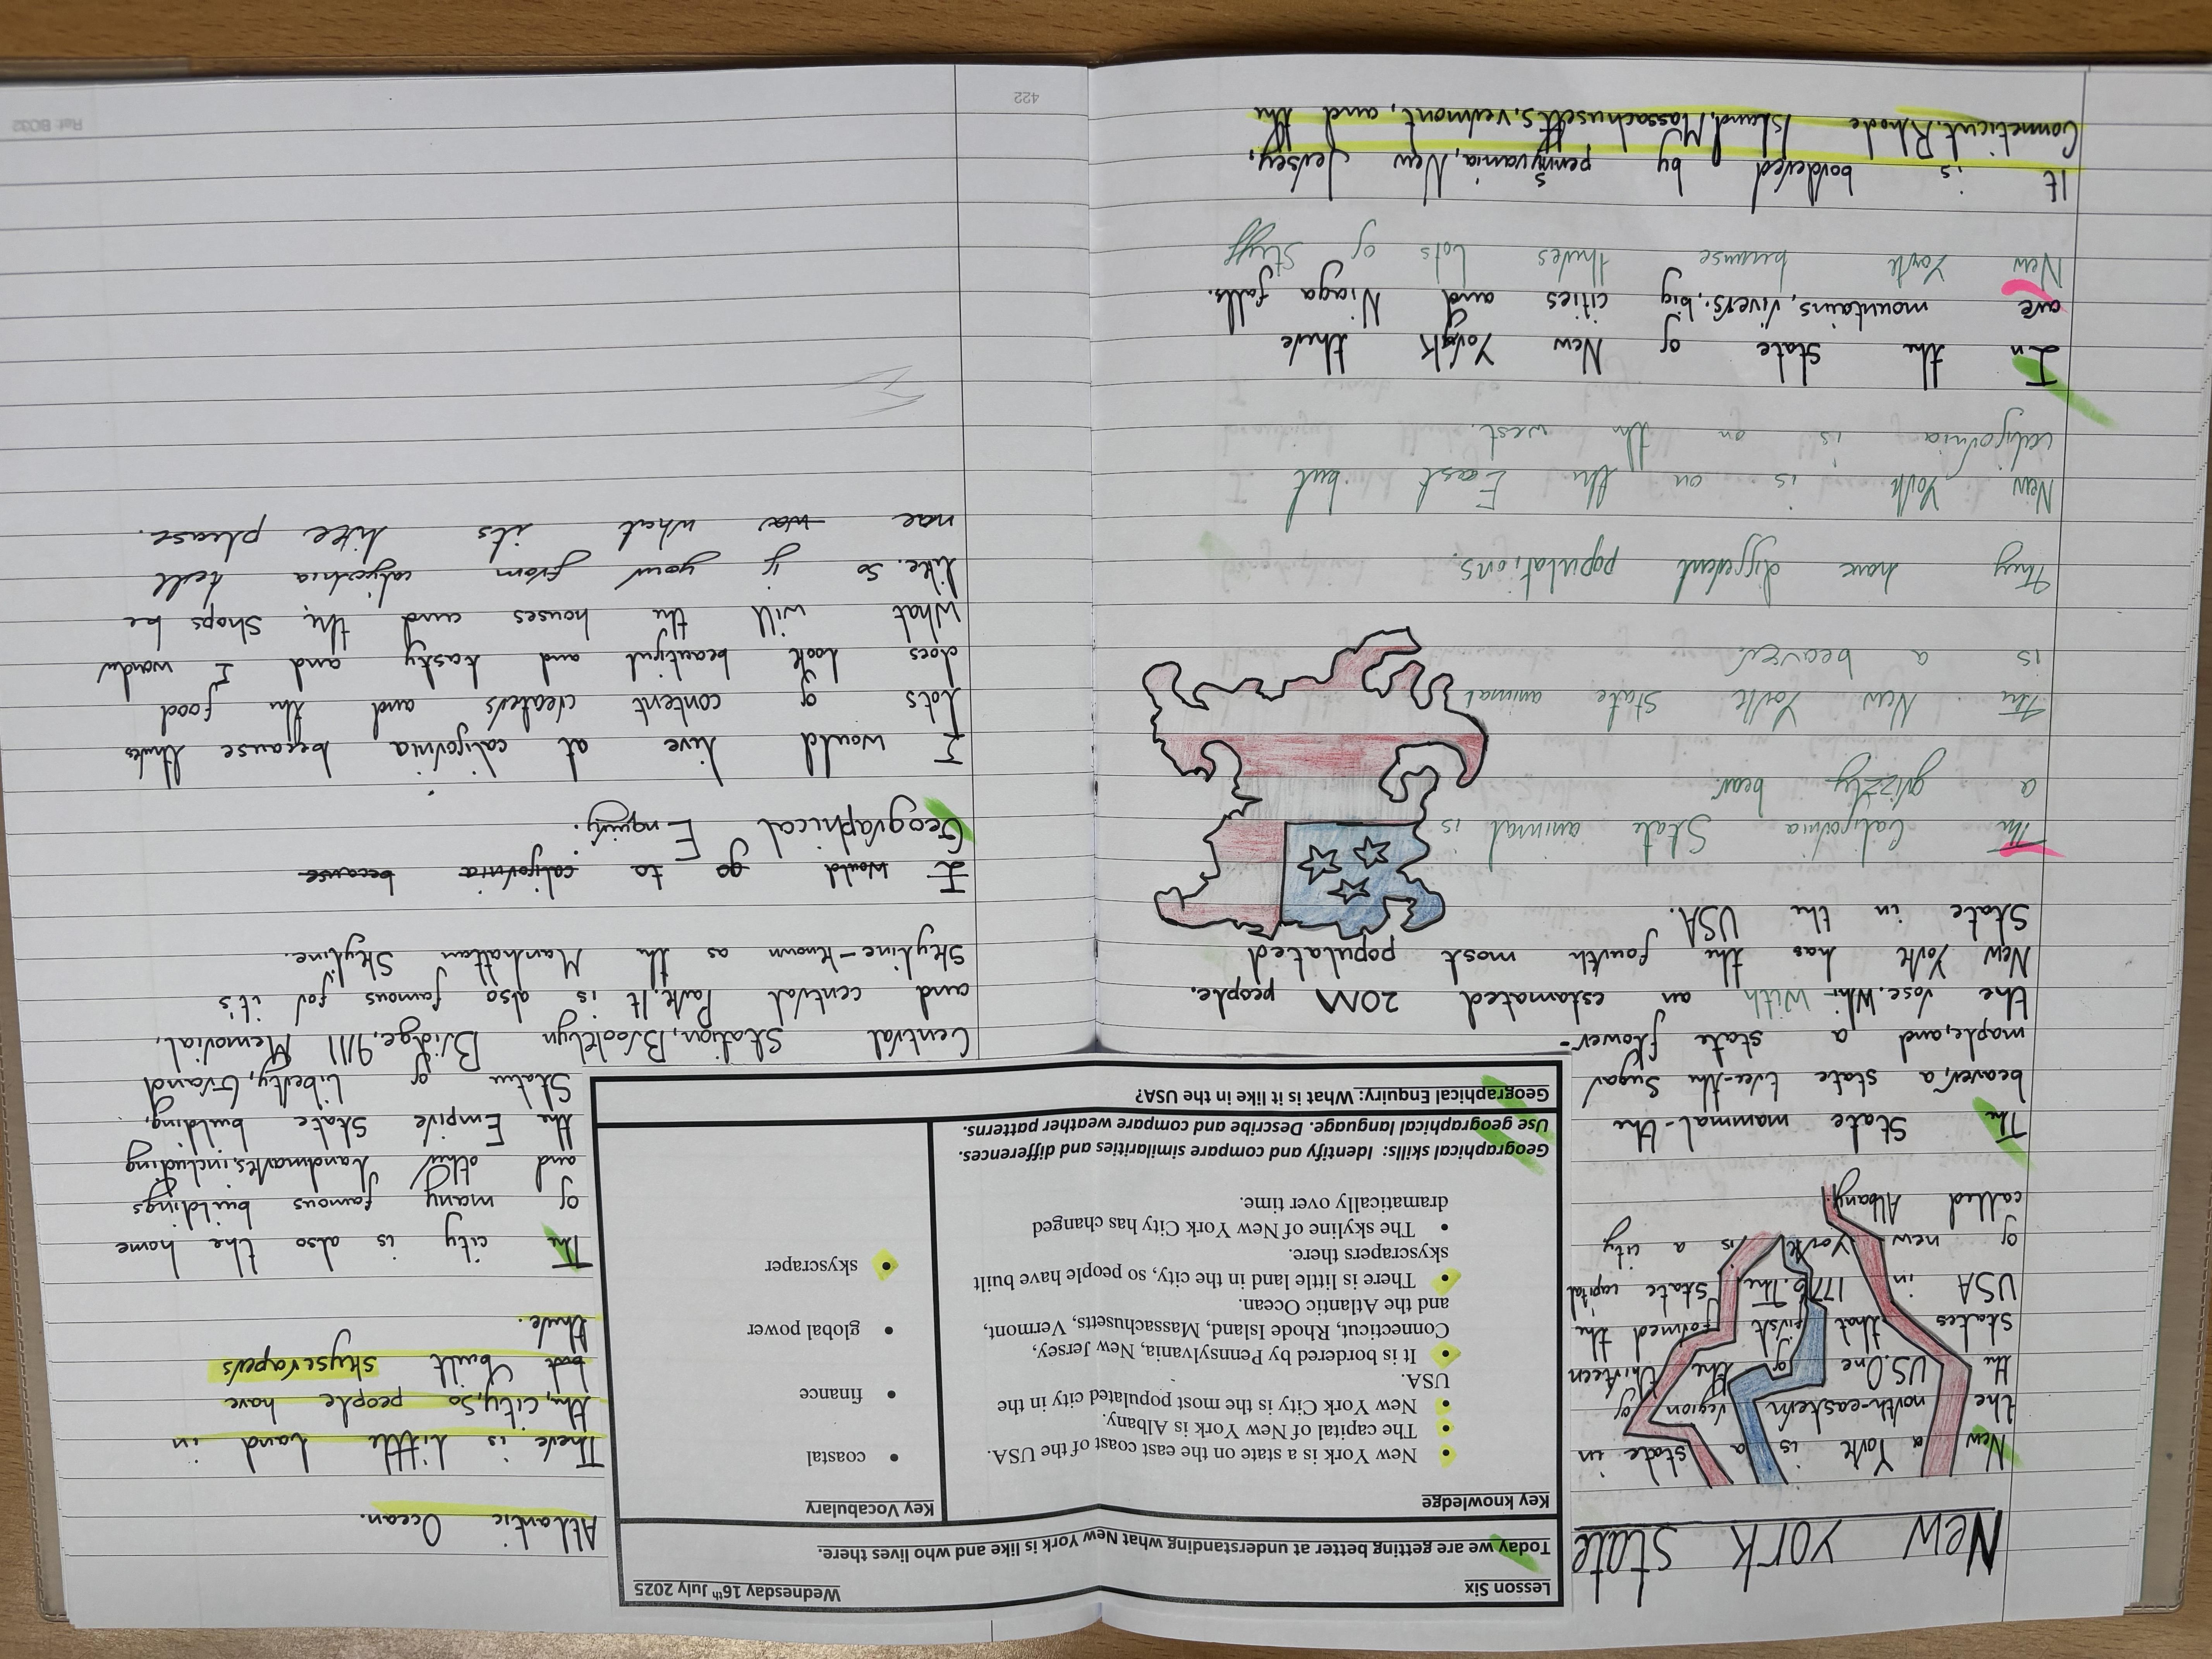 New York State
New a York is a state in
the north-eastern region of
the US. One of the thirteen
states that first formed the
USA in 1776. The state capital
of new York is a city
called Albany.
The state mammal-the
beaver, a state tree-the sugar
maple, and a state flower-
the rose. Whi- With an estamated 20M people.
New York has the fourth most populated
State in the USA.
The California State animal is
a grizzly bear
The New York State animal
is a beaver.
They have different populations.
New York is on the East but
california is on the west.
In the state of New York there
are mountains, rivers, big cities and Niaga falls.
New York because theres lots of Stuff
It is bordered by pennsyvania, New Jersey,
Conneticut, Rhode Island, Massachusetts, vermont, and the
Lesson Six
Wednesday 16th July 2025
Today we are getting better at understanding what New York is like and who lives there.
Key knowledge
• New York is a state on the east coast of the USA.
• The capital of New York is Albany.
• New York City is the most populated city in the
USA.
• It is bordered by Pennsylvania, New Jersey,
Connecticut, Rhode Island, Massachusetts, Vermont,
and the Atlantic Ocean.
• There is little land in the city, so people have built
skyscrapers there.
• The skyline of New York City has changed
dramatically over time.
Key Vocabulary
• coastal
• finance
• global power
• skyscraper
Geographical skills: Identify and compare similarities and differences.
Use geographical language. Describe and compare weather patterns.
Geographical Enquiry: What is it like in the USA?
Atlantic Ocean.
There is little land in
the city, so people have
but built skyscrapers
there.
The city is also the home
of many famous buildings
and other landmarks, including
the Empire State building,
Statue of Liberty, Grand
Central Station, Brooklyn Bridge, 9/11 Memorial,
and central Park. It is also famous for it's
skyline-known as the Manhattan Skyline.
I would go to california because
Geographical Enquiry:
I would live at california because theres
lots of content creaters and the food
does look beautiful and tasty and I wonder
what will the houses and the shops be
like. so if your from california tell
me wa what its like please.
422
Ref: BC32